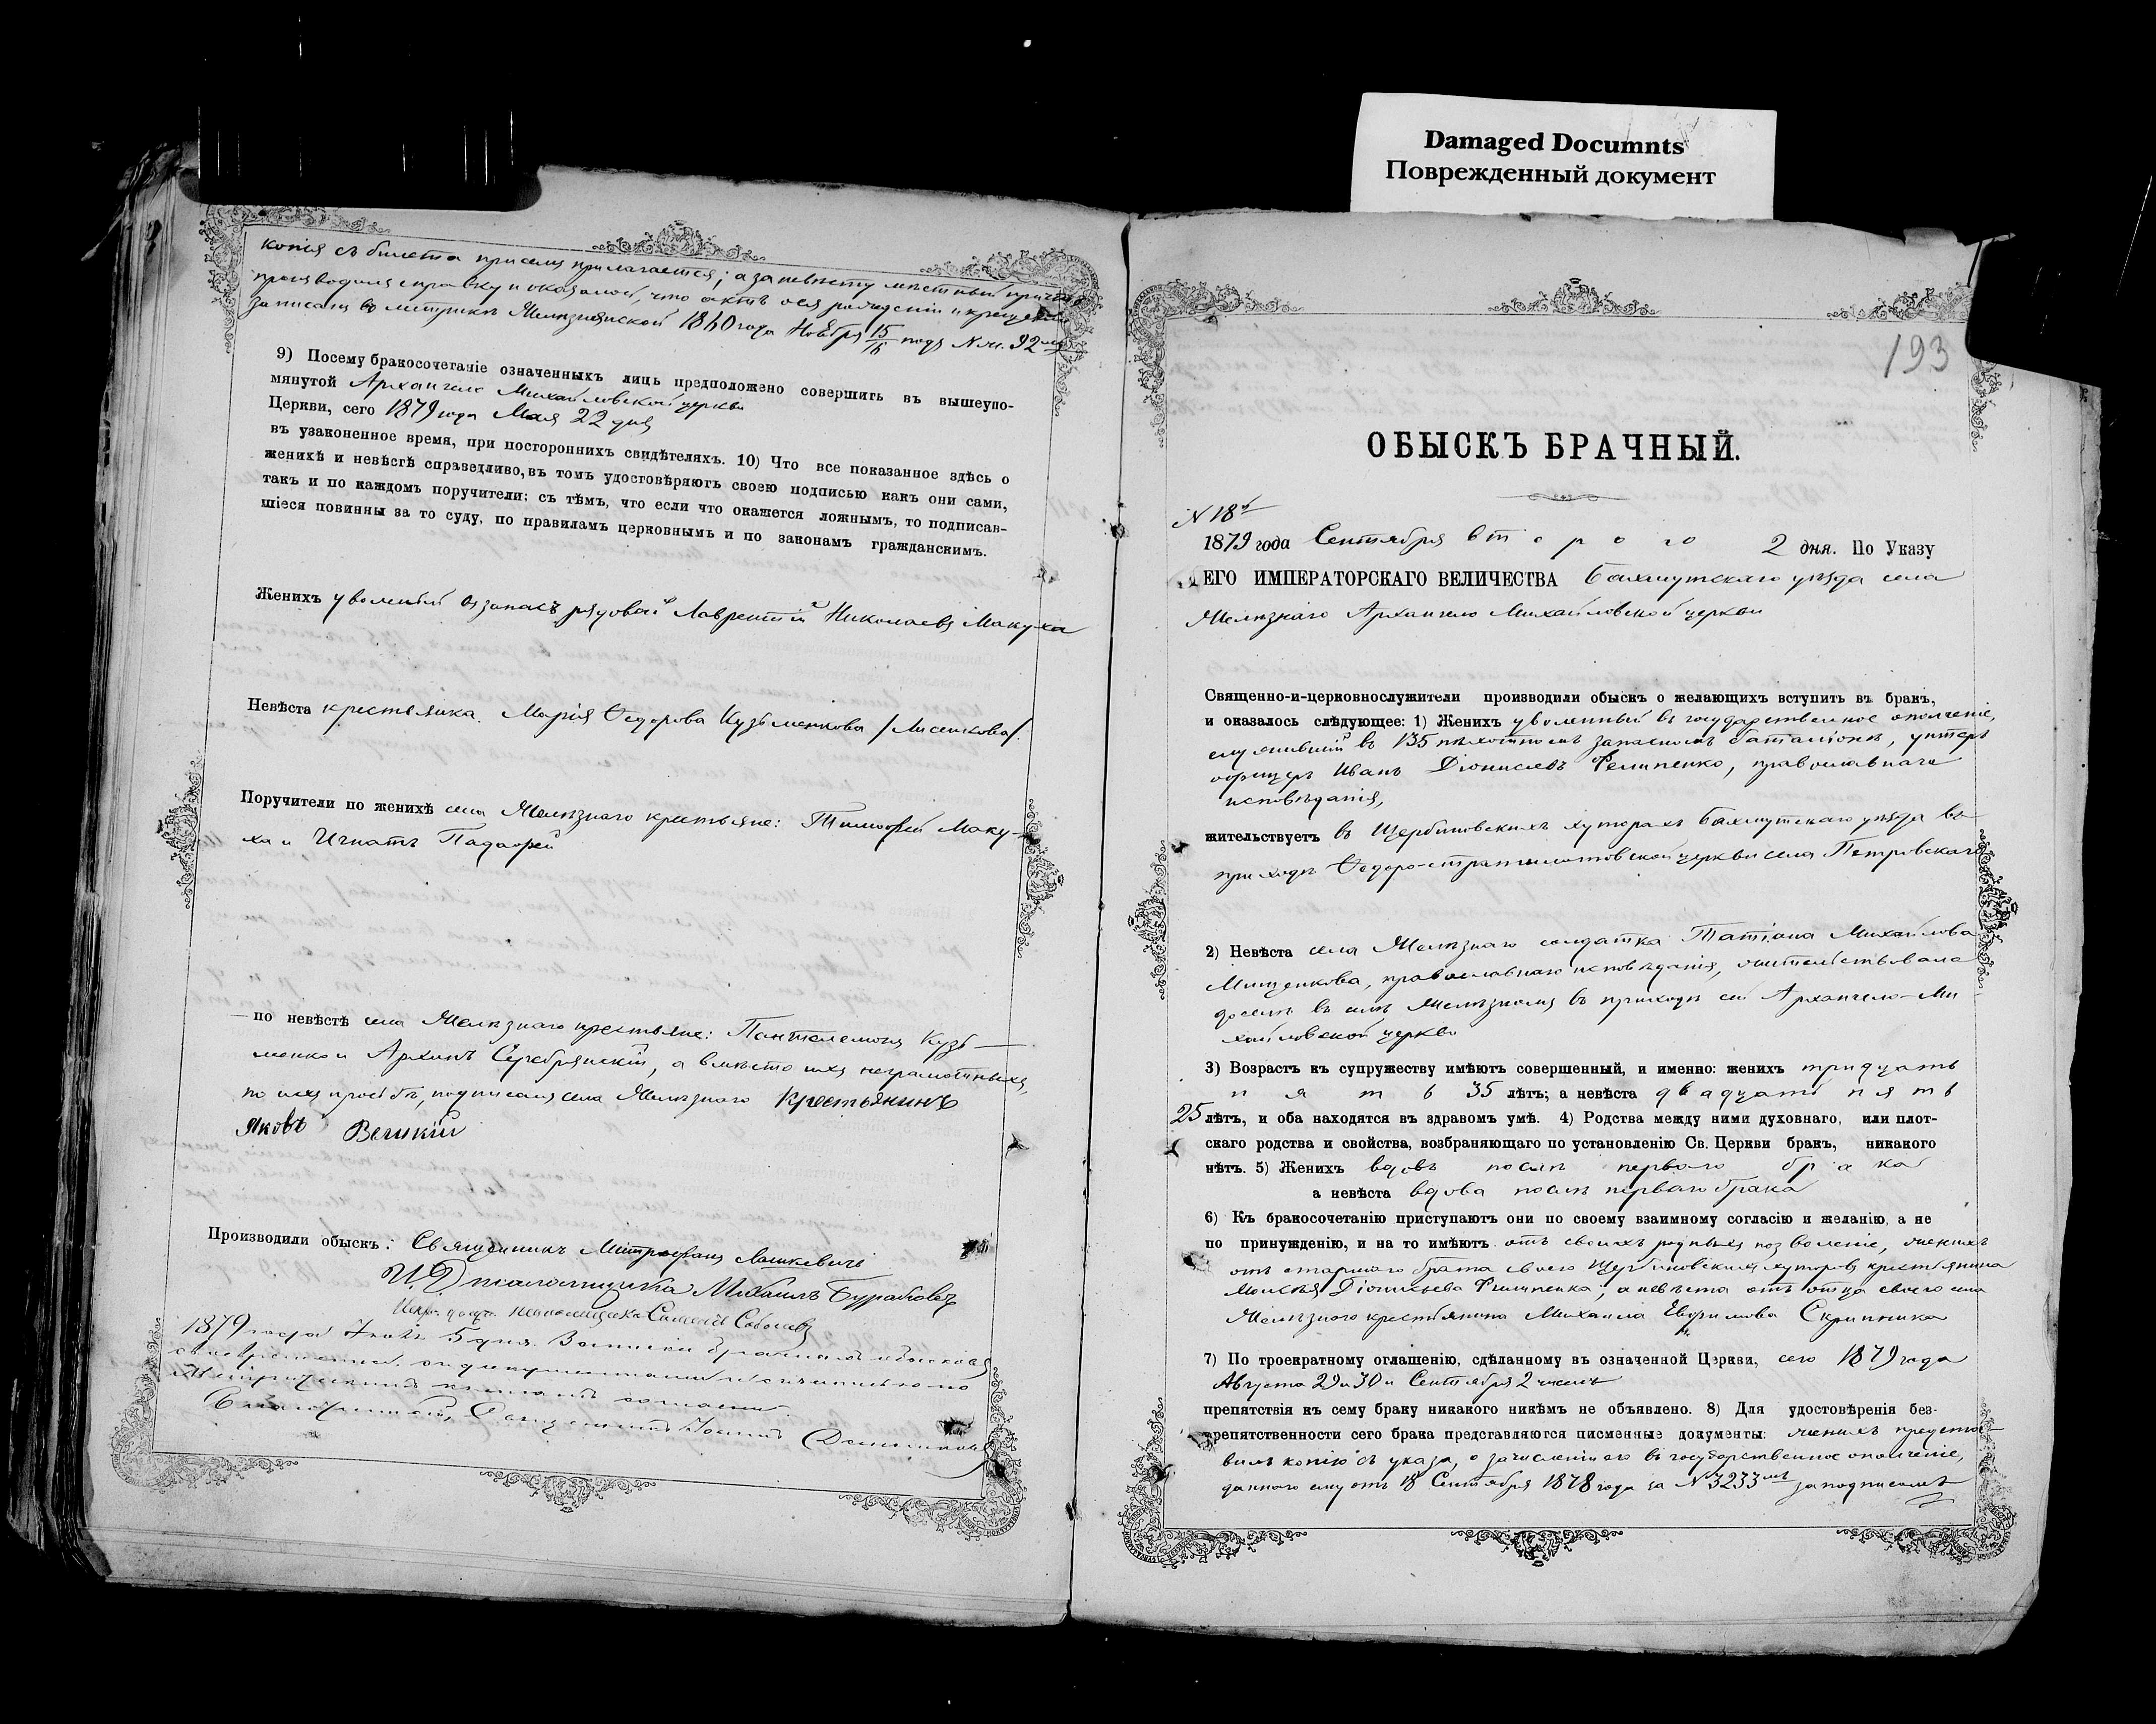 Damaged Documnts
Поврежденный документ
копія съ билета при семъ прилагается; а за невѣсту мѣстный причтъ
производилъ справку и оказалось, что актъ о ея рожденіи и крещеніи
записанъ въ метрикѣ Желѣзнянской 1860 года Ноября 15/16 подъ № м. 92мъ
9) Посему бракосочетаніе означенныхъ лицъ предположено совершить въ вышеупо-
мянутой Архангело Михайловской церкви
Церкви, сего 1879 года Мая 22 дня
въ узаконенное время, при постороннихъ свидѣтеляхъ. 10) Что все показанное здѣсь о
женихѣ и невѣстѣ справедливо, въ томъ удостовѣряютъ своею подписью какъ они сами,
такъ и по каждомъ поручители; съ тѣмъ, что если что окажется ложнымъ, то подписав-
шіеся повинны за то суду, по правиламъ церковнымъ и по законамъ гражданскимъ.
Женихъ уволенный въ запасъ рядовой Лаврентій Николаевъ Макуха
Невѣста крестьянка Марія Ѳедорова Кузьменкова /Лисенкова/.
Поручители по женихѣ села Желѣзнаго крестьяне: Тимофей Маку-
ха и Игнатъ
— по невѣстѣ села Желѣзнаго крестьяне: Пантелемонъ Кузь-
менко и Архипъ Серебрянскій, а вмѣсто ихъ неграмотныхъ,
по ихъ просьбѣ, подписался села Желѣзнаго Крестьянинъ
Яковъ Великій
Производили обыскъ: Священникъ Митрофанъ Лашкевичъ
И. Д. Псаломщика Михаилъ
псаломщика Симеонъ Соболевъ
1879 года Іюня 5 дня. Записи брачныхъ обысковъ
съ документами и
Метрическими книгами
Благочинный, Священникъ Іоаннъ
193
ОБЫСКЪ БРАЧНЫЙ.
№ 18й
1879 года Сентября второго 2 дня. По Указу
ЕГО ИМПЕРАТОРСКАГО ВЕЛИЧЕСТВА Бахмутскаго уѣзда села
Желѣзнаго Архангело Михайловской церкви
Священно-и-церковнослужители производили обыскъ о желающихъ вступить въ бракъ,
и оказалось слѣдующее: 1) Женихъ уволенный въ государственное ополченіе,
служившій въ 135 пѣхотномъ запасномъ баталіонѣ, унтеръ
офицеръ Иванъ Діонисіевъ Филипенко, православнаго
исповѣданія,
жительствуетъ въ Щербиновскихъ хуторахъ Бахмутскаго уѣзда въ
приходѣ Ѳедоро-стратилатовской церкви села Петровскаго
2) Невѣста села Желѣзнаго солдатка Татіана Михайлова
Мищенкова, православнаго исповѣданія, жительствовала
доселѣ въ селѣ Желѣзномъ въ приходѣ сей Архангело-Ми-
хайловской церкви
3) Возрастъ къ супружеству имѣютъ совершенный, и именно: женихъ тридцать
пять 35 лѣтъ; а невѣста двадцать пять
25 лѣтъ, и оба находятся въ здравомъ умѣ. 4) Родства между ними духовнаго, или плот-
скаго родства и свойства, возбраняющаго по установленію Св. Церкви бракъ, никакого
нѣтъ. 5) Женихъ вдовъ послѣ перваго брака
а невѣста вдова послѣ перваго брака
6) Къ бракосочетанію приступаютъ они по своему взаимному согласію и желанію, а не
по принужденію, и на то имѣютъ отъ своихъ родныхъ позволеніе, женихъ
отъ старшаго брата своего Щербиновскихъ хуторовъ крестьянина
Моисея Діонисьева Филипенка, а невѣста отъ отца своего села
Желѣзнаго крестьянина Михаила Евфимова Скрипника
7) По троекратному оглашенію, сдѣланному въ означенной Церкви, сего 1879 года
Августа 29 и 30 и Сентября 2 чиселъ
препятствія къ сему браку никакого никѣмъ не объявлено. 8) Для удостовѣренія без-
препятственности сего брака представляются писменные документы: женихъ предста-
вилъ копію съ указа, о зачисленіи его въ государственное ополченіе,
даннаго ему отъ 18 Сентября 1878 года за №3233мъ за подписомъ